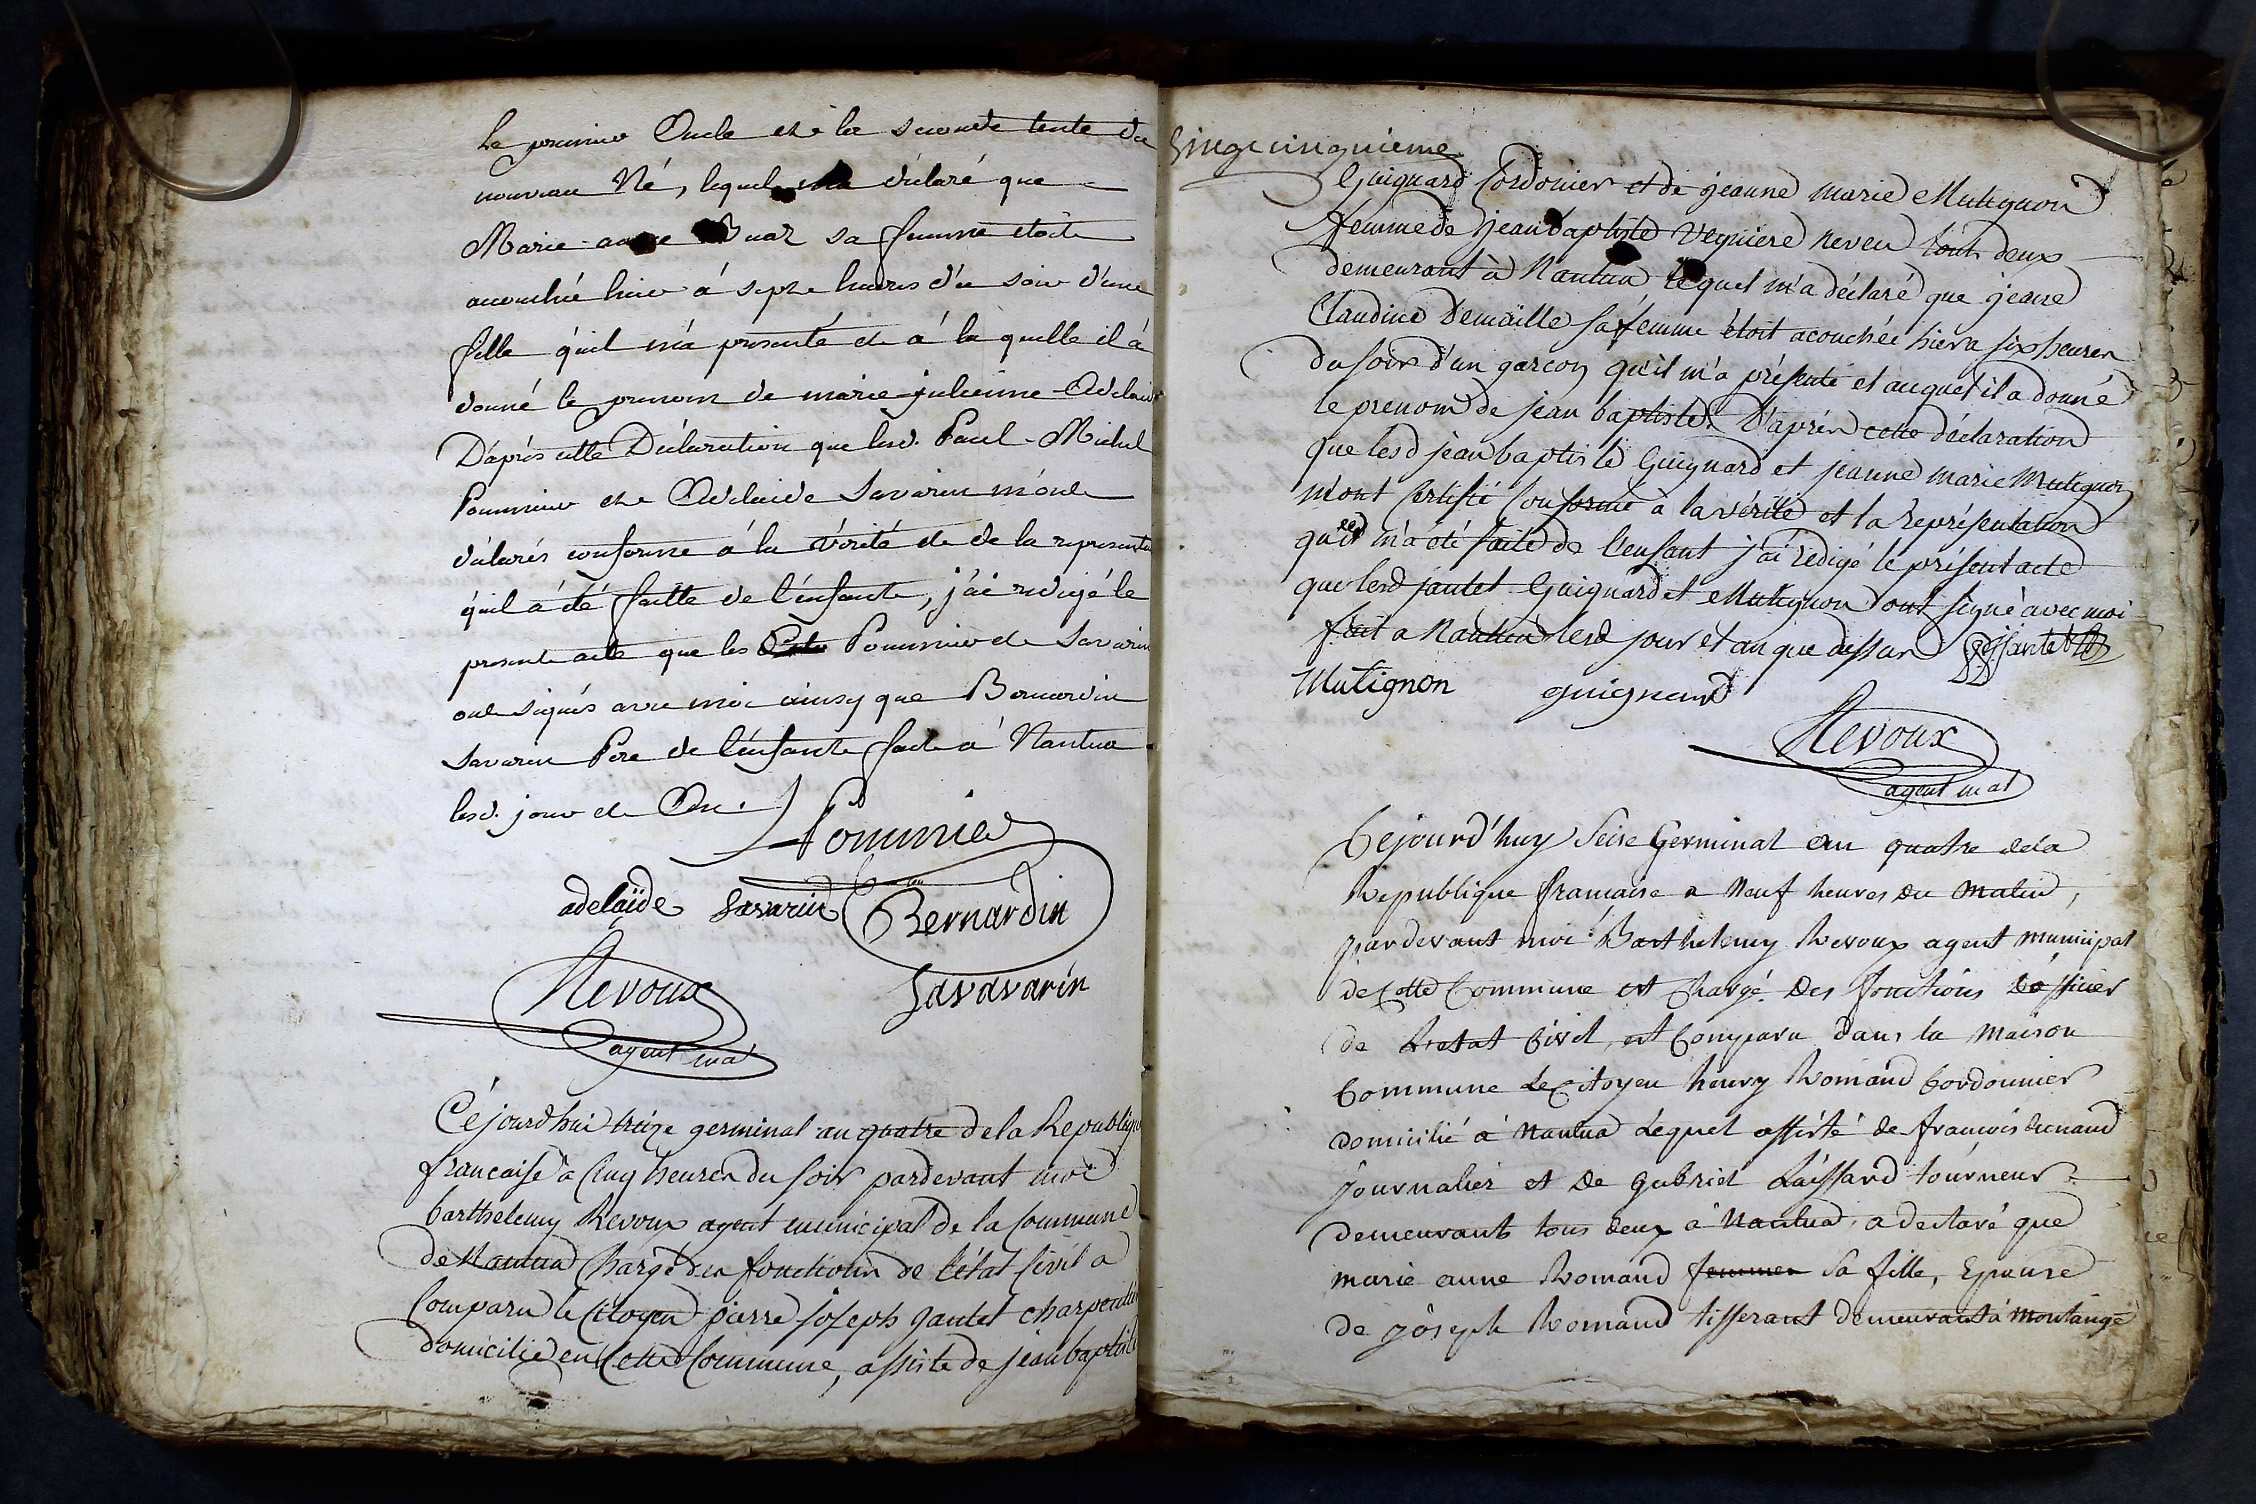 le premier Oncle et la seconde tente du
nouveau Né, lequel m'a déclaré que
Marie anne Buaz sa femme étoit
accouchée hier á sept heures du soir d'une
fille quil m'á presenté et á la quelle il á
donné le prenom de marie-julienne-Adelaide
D'aprés cette Déclaration que lesd. Paul-Michel
Pommier et Adelaide Savarin m'ont
déclarés conforme á la vérité et de la representation
quil á été faitte de l'enfant, j'ái redigé le
present acte que les Pommier et Savarin
ont signés avec moi ainsy que Bernardin
Savarin Pere de l'enfant fait á Nantua
lesd. jour et An.
Pommier
adelaïde Savarin Bernardin
Savavarin
Revoux
agent mal
Céjourd'hui treize germinal an quatre de la Republique
francaise à Cinq heures du soir pardevant moi
barthelemy Revoux agent municipal de la Commune
de Nantua Chargé des fonctions de l'état Civil a
Comparu le Citoyen pierre joseph jantet charpentier
domicilié en Cette Commune, assisté de jean baptiste
Vingt cinquieme
Guignard Cordonier et de jeanne marie Mutignon
femme de jean baptiste Veyniere neveu tout deux
demeurant à Nantua lequel m'a déclaré que jeane
Claudine Demaille sa femme étoit acouchée hier a six heures
du soir d'un garcon qu'il m'a présenté et auquel il a donné
le prenom de jean baptiste. D'après cette déclaration
que lesd jean baptiste Guignard et jeanne marie Mutignon
m'ont Certifié Conforme à la vérité et la représentation
qui m'a été faite de l'enfant j'ai redigé le présent acte
que lesd jantet Guignard et Mutignon ont signé avec moi
fait a Nantua lesd jour et an que dessus pjjantet
Mutignon guignard
Revoux
agent mal
Cejourd'huy Seise Germinal an quatre dela
Republique francaise a Neuf heures du Matin,
par devant moi Barthelemy Revoux agent municipal
de Cette Commune et Chargé des fonctions d'officier
de L'etat Civil, est Comparu dans la Maison
Commune Le Citoyen henry Romand Cordonnier
domicilié a Nantua Lequel assisté de francois dunand
journalier et de gabriel Laissard tourneur
demeurants tous deux a Nantua, a declaré que
marie anne Romand femmes sa fille, Epouse
de joseph Romand tisserant demeurant á Montange